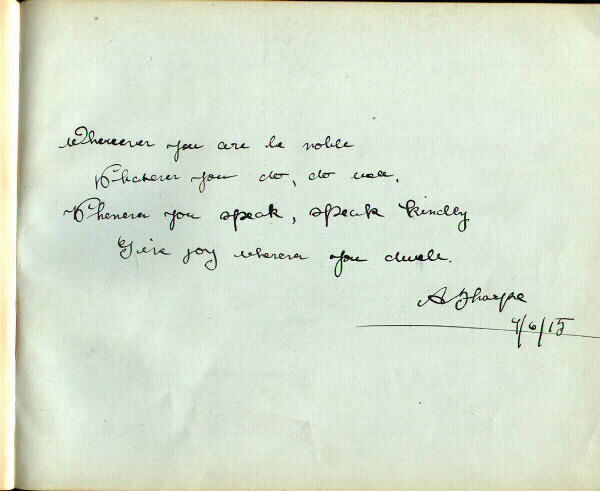 Wherever you are be noble
Whatever you do, do well.
Whenever you speak, speak kindly
Give joy wherever you dwell.
A Sharpe
9/6/15